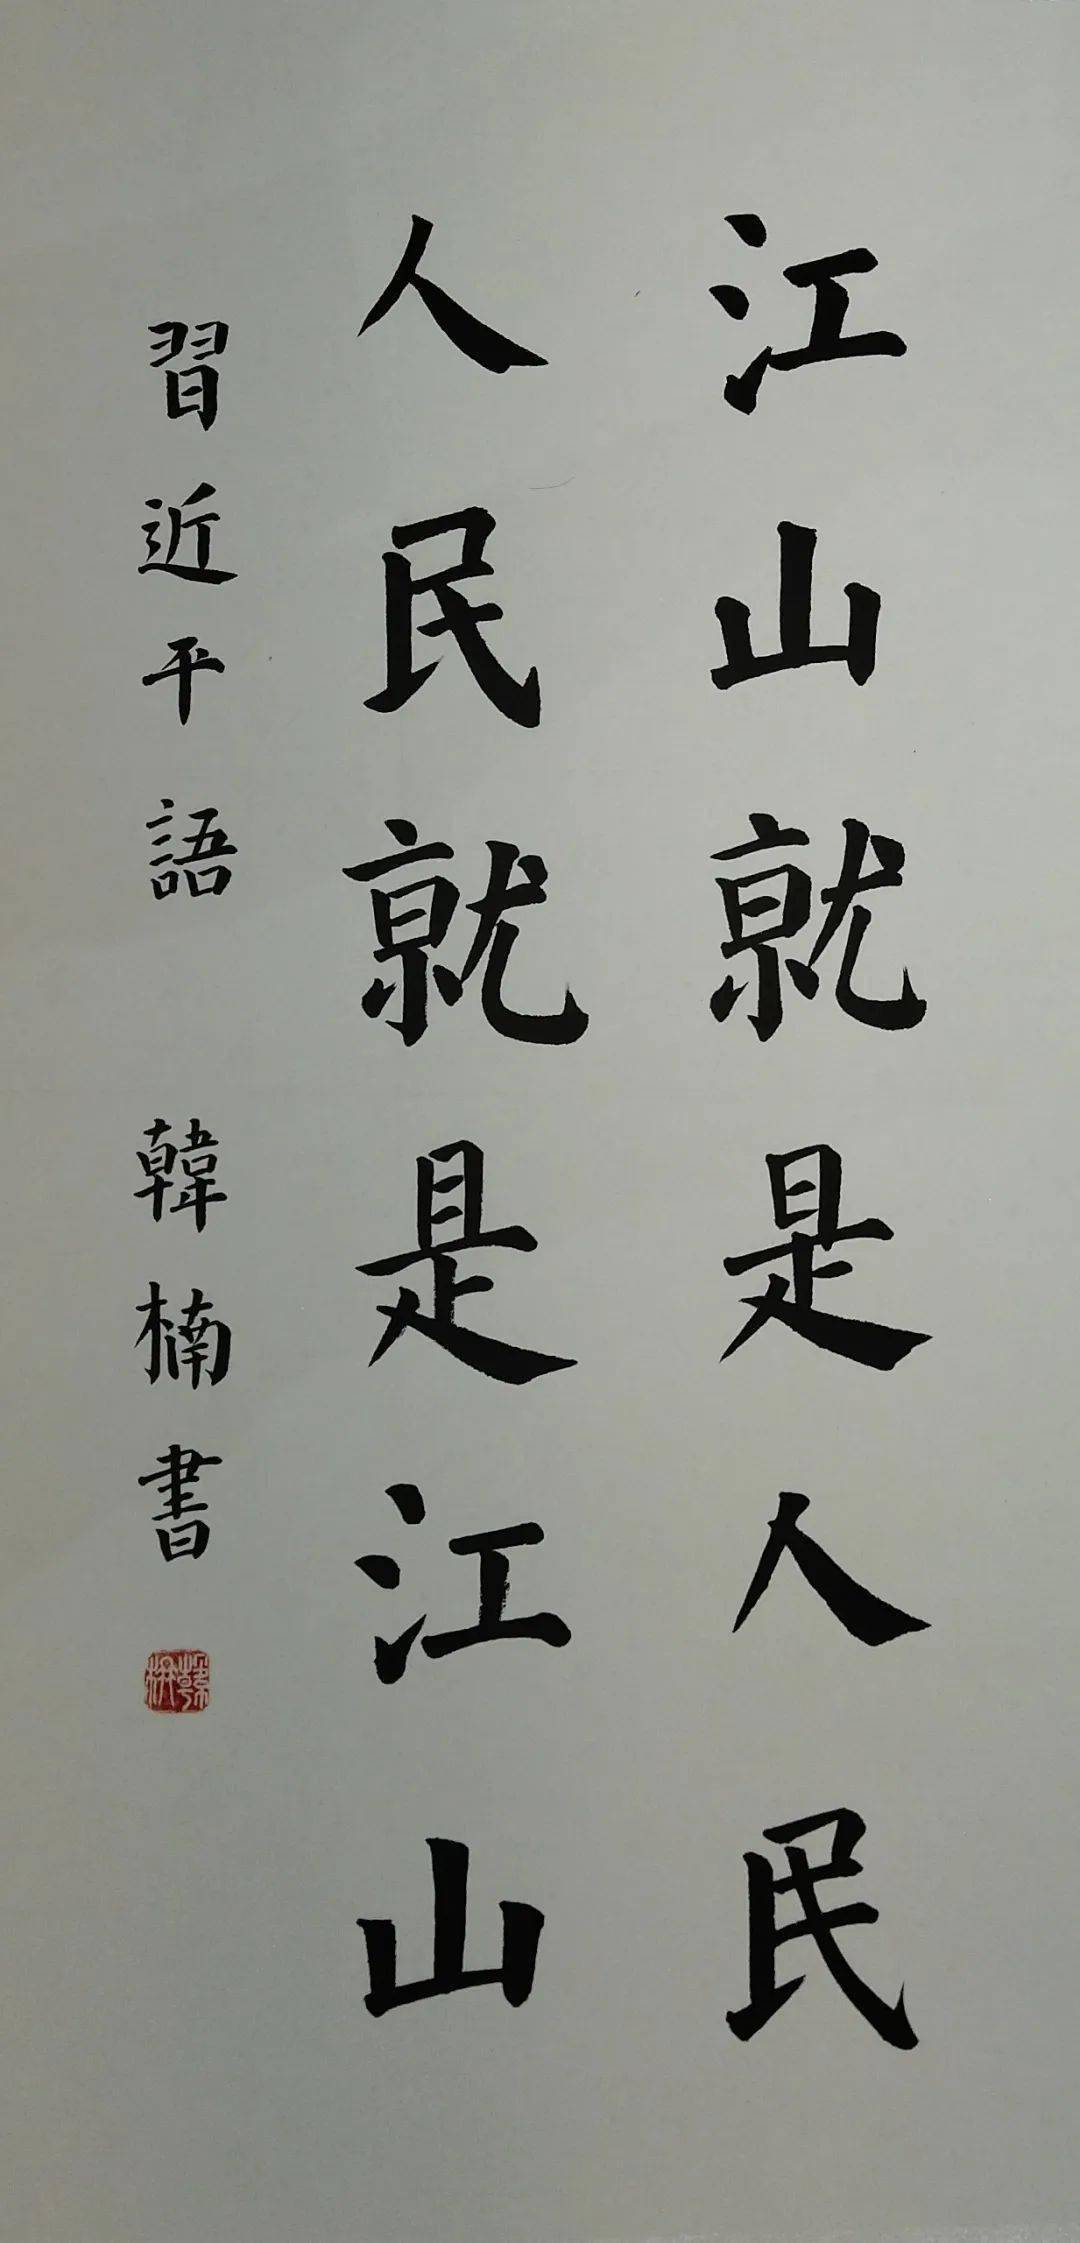 江山就是人民
人民就是江山
習近平語 韓楠書
韓楠